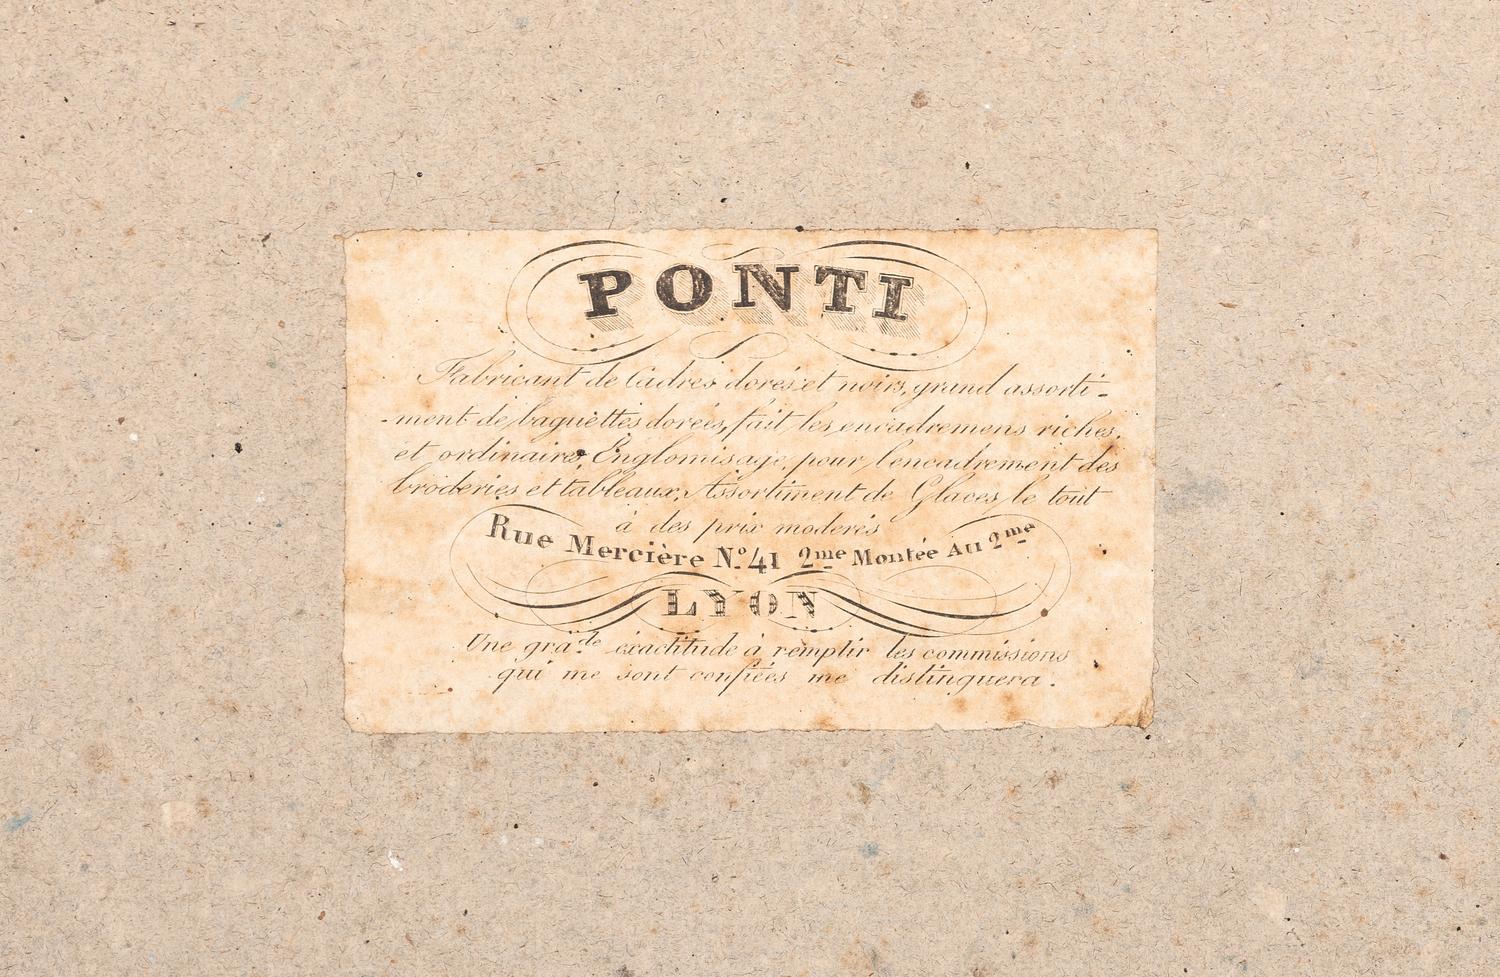 PONTI
Fabricant de Cadres dorés et noirs, grand assorti-
-ment de baguettes dorées, fait les encadremens riches,
et ordinaires, Englomisage, pour l'encadrement des
broderies et tableaux, Assortiment de Glaces le tout
à des prix moderés
Rue Mercière No. 41 2me Montée Au 2me
LYON
Une grande exactitude à remplir les commissions
qui me sont confiées me distinguera.